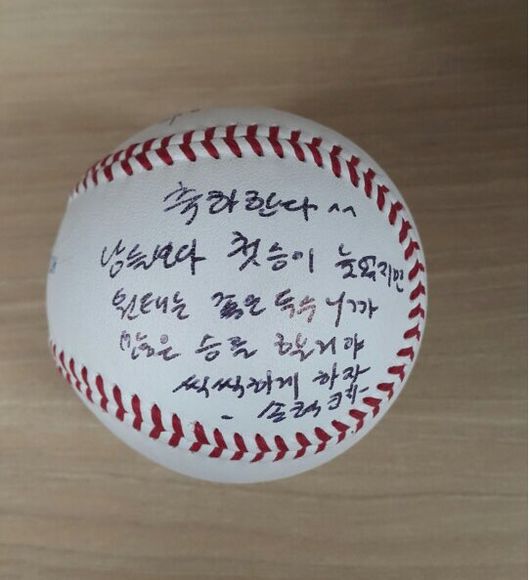 축하한다 ^^
남들보다 첫승이 늦었지만
원태는 좋은 투수니까
많은 승을 거야
씩씩하게 하자
- 손혁